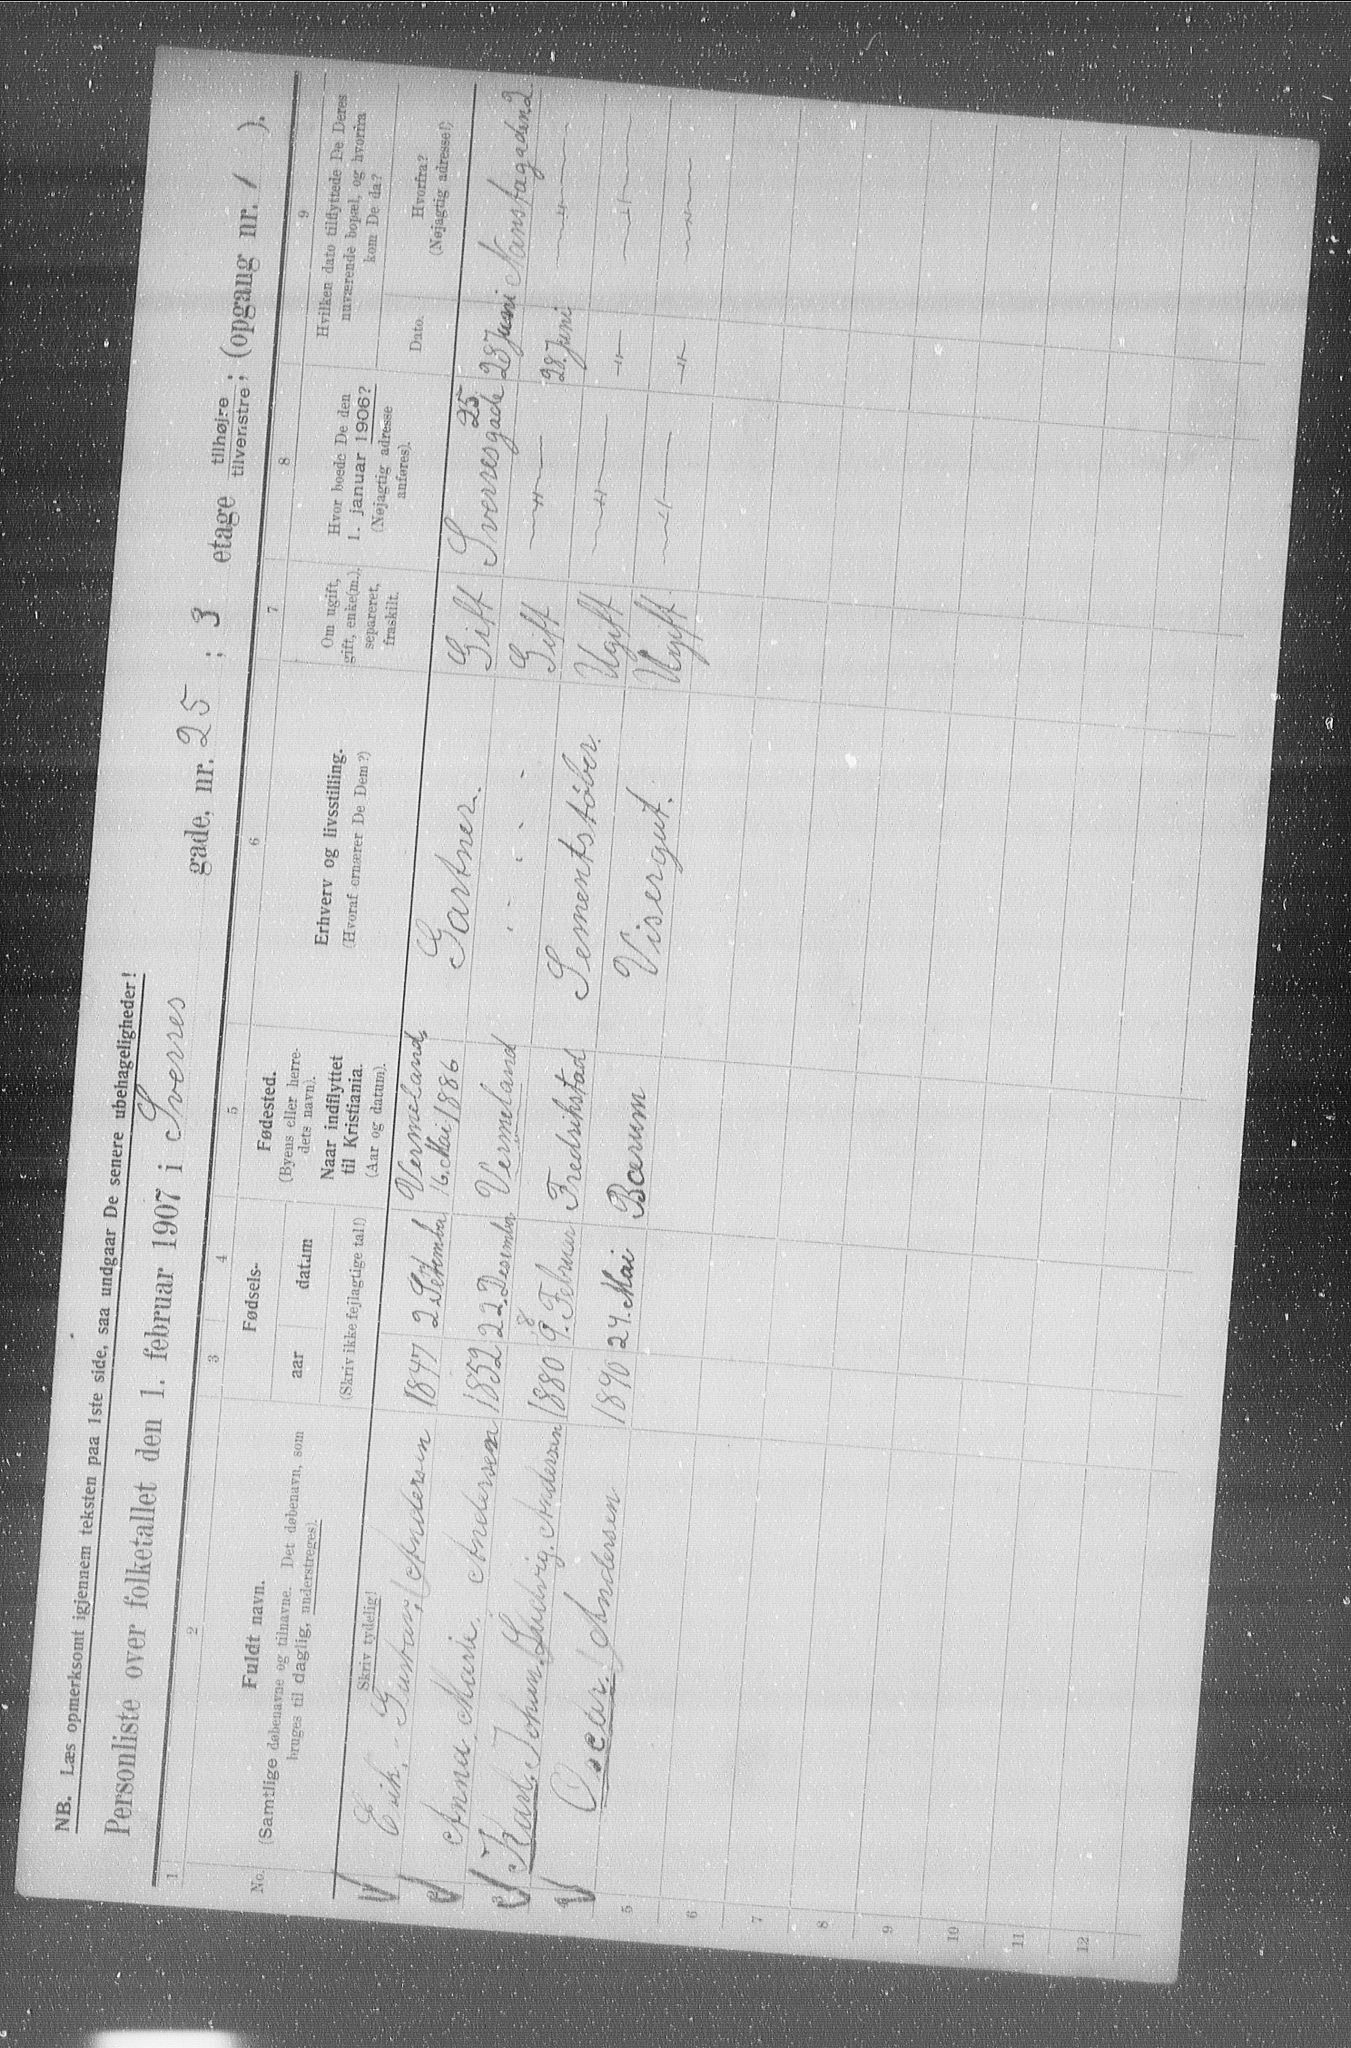 NB. Læs opmerksomt igjennem teksten paa 1ste side, saa undgaar De senere ubehageligheder!
Personliste over folketallet den 1. februar 1907 i Sverres gade, nr. 25 ; 3 etage tilhøjre tilvenstre; (opgang nr. 1 ).
1 2 3 4 5 6 7 8 9
No.
Fuldt navn.
(Samtlige døbenavne og tilnavne. Det døbenavn, som
bruges til daglig, understreges).
Skriv tydelig!
Fødsels-
aar datum
(Skriv ikke fejlagtige tal!)
Fødested.
(Byens eller herre-
dets navn).
Naar indflyttet
til Kristiania.
(Aar og datum).
Erhverv og livsstilling.
(Hvoraf ernærer De Dem?)
Om ugift,
gift, enke(m.),
separeret,
fraskilt.
Hvor boede De den
1. januar 1906?
(Nøjagtig adresse
anføres).
Hvilken dato tilflyttede De Deres
nuværende bopæl, og hvorfra
kom De da?
Dato.
Hvorfra?
(Nøjagtig adresse!)
Erik Gustav Andersen 1847 2 Vermeland 16. Mai 1886 Gartner. Gift Sverresgade 25 28 Juni
2 Anna Marie. Andersen 1852 22. Desember Vermeland Gift —"— 28. Juni —"—
3 Karl. Johan. Ludvig. Andersen 1880 9. Februar Fredrikstad Sementstöber. Ugift —"— —"— —"—
Oscar. Andersen 1890 24. Mai Bærum Visergut. Ugift —"— —"— —"—
5
6
7
8
9
10
11
12